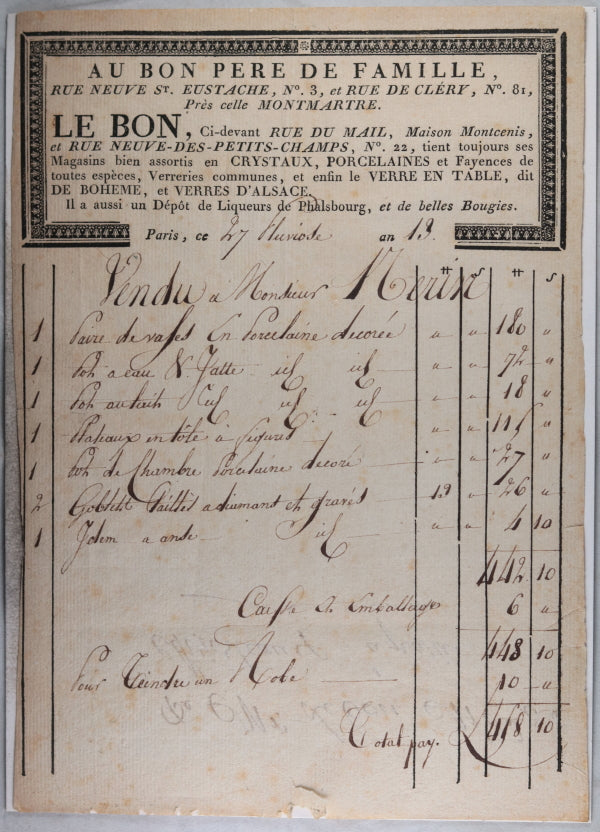 AU BON PERE DE FAMILLE,
RUE NEUVE St. EUSTACHE, No. 3, et RUE DE CLÉRY, No. 81,
Près celle MONTMARTRE.
LE BON, Ci-devant RUE DU MAIL, Maison Montcenis,
et RUE NEUVE-DES-PETITS-CHAMPS, No. 22, tient toujours ses
Magasins bien assortis en CRYSTAUX, PORCELAINES et Fayences de
toutes espèces, Verreries communes, et enfin le VERRE EN TABLE, dit
DE BOHEME, et VERRES D'ALSACE.
Il a aussi un Dépôt de Liqueurs de Phalsbourg, et de belles Bougies.
Paris, ce 27 Pluviose an 13.
Vendu a Monsieur Nerin ₶ s ₶ s
1 Paire de vases En Porcelaine decorée " " 180 "
1 Pot a eau & Jatte id id " " 72 "
1 Pot au lait id id id " " 18 "
1 Plateaux en tôle a figures " " 115 "
1 Pot de Chambre Porcelaine decoré " " 27 "
2 Gobletts Taillés a diamant et gravés 13 " 26 "
1 Idem a anse id " " 4 10
442 10
Caisse et Emballage 6 "
448 10
Pour Teindre un Robe 10 "
Total pay. 458 10